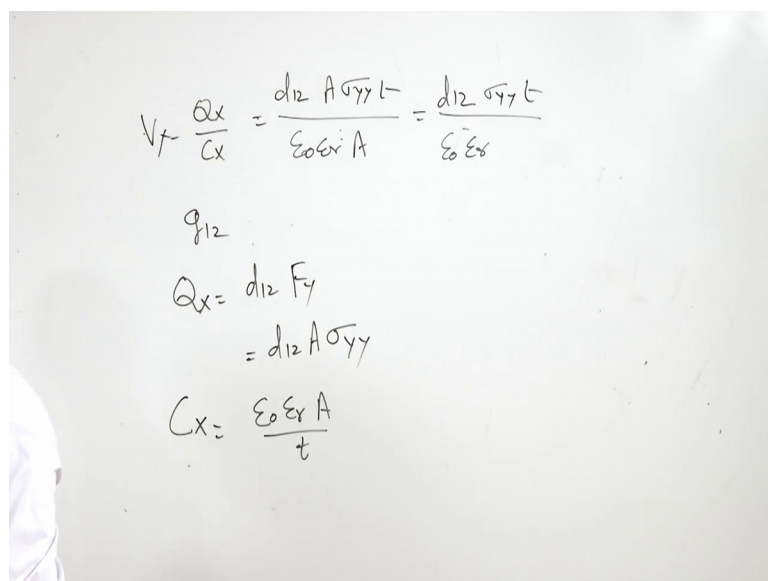 Vx = Qx/Cx = d12 A σyy t / ε0 εr A = d12 σyy t / ε0 εr
g12
Qx = d12 Fy
= d12 A σyy
Cx = ε0 εr A / t